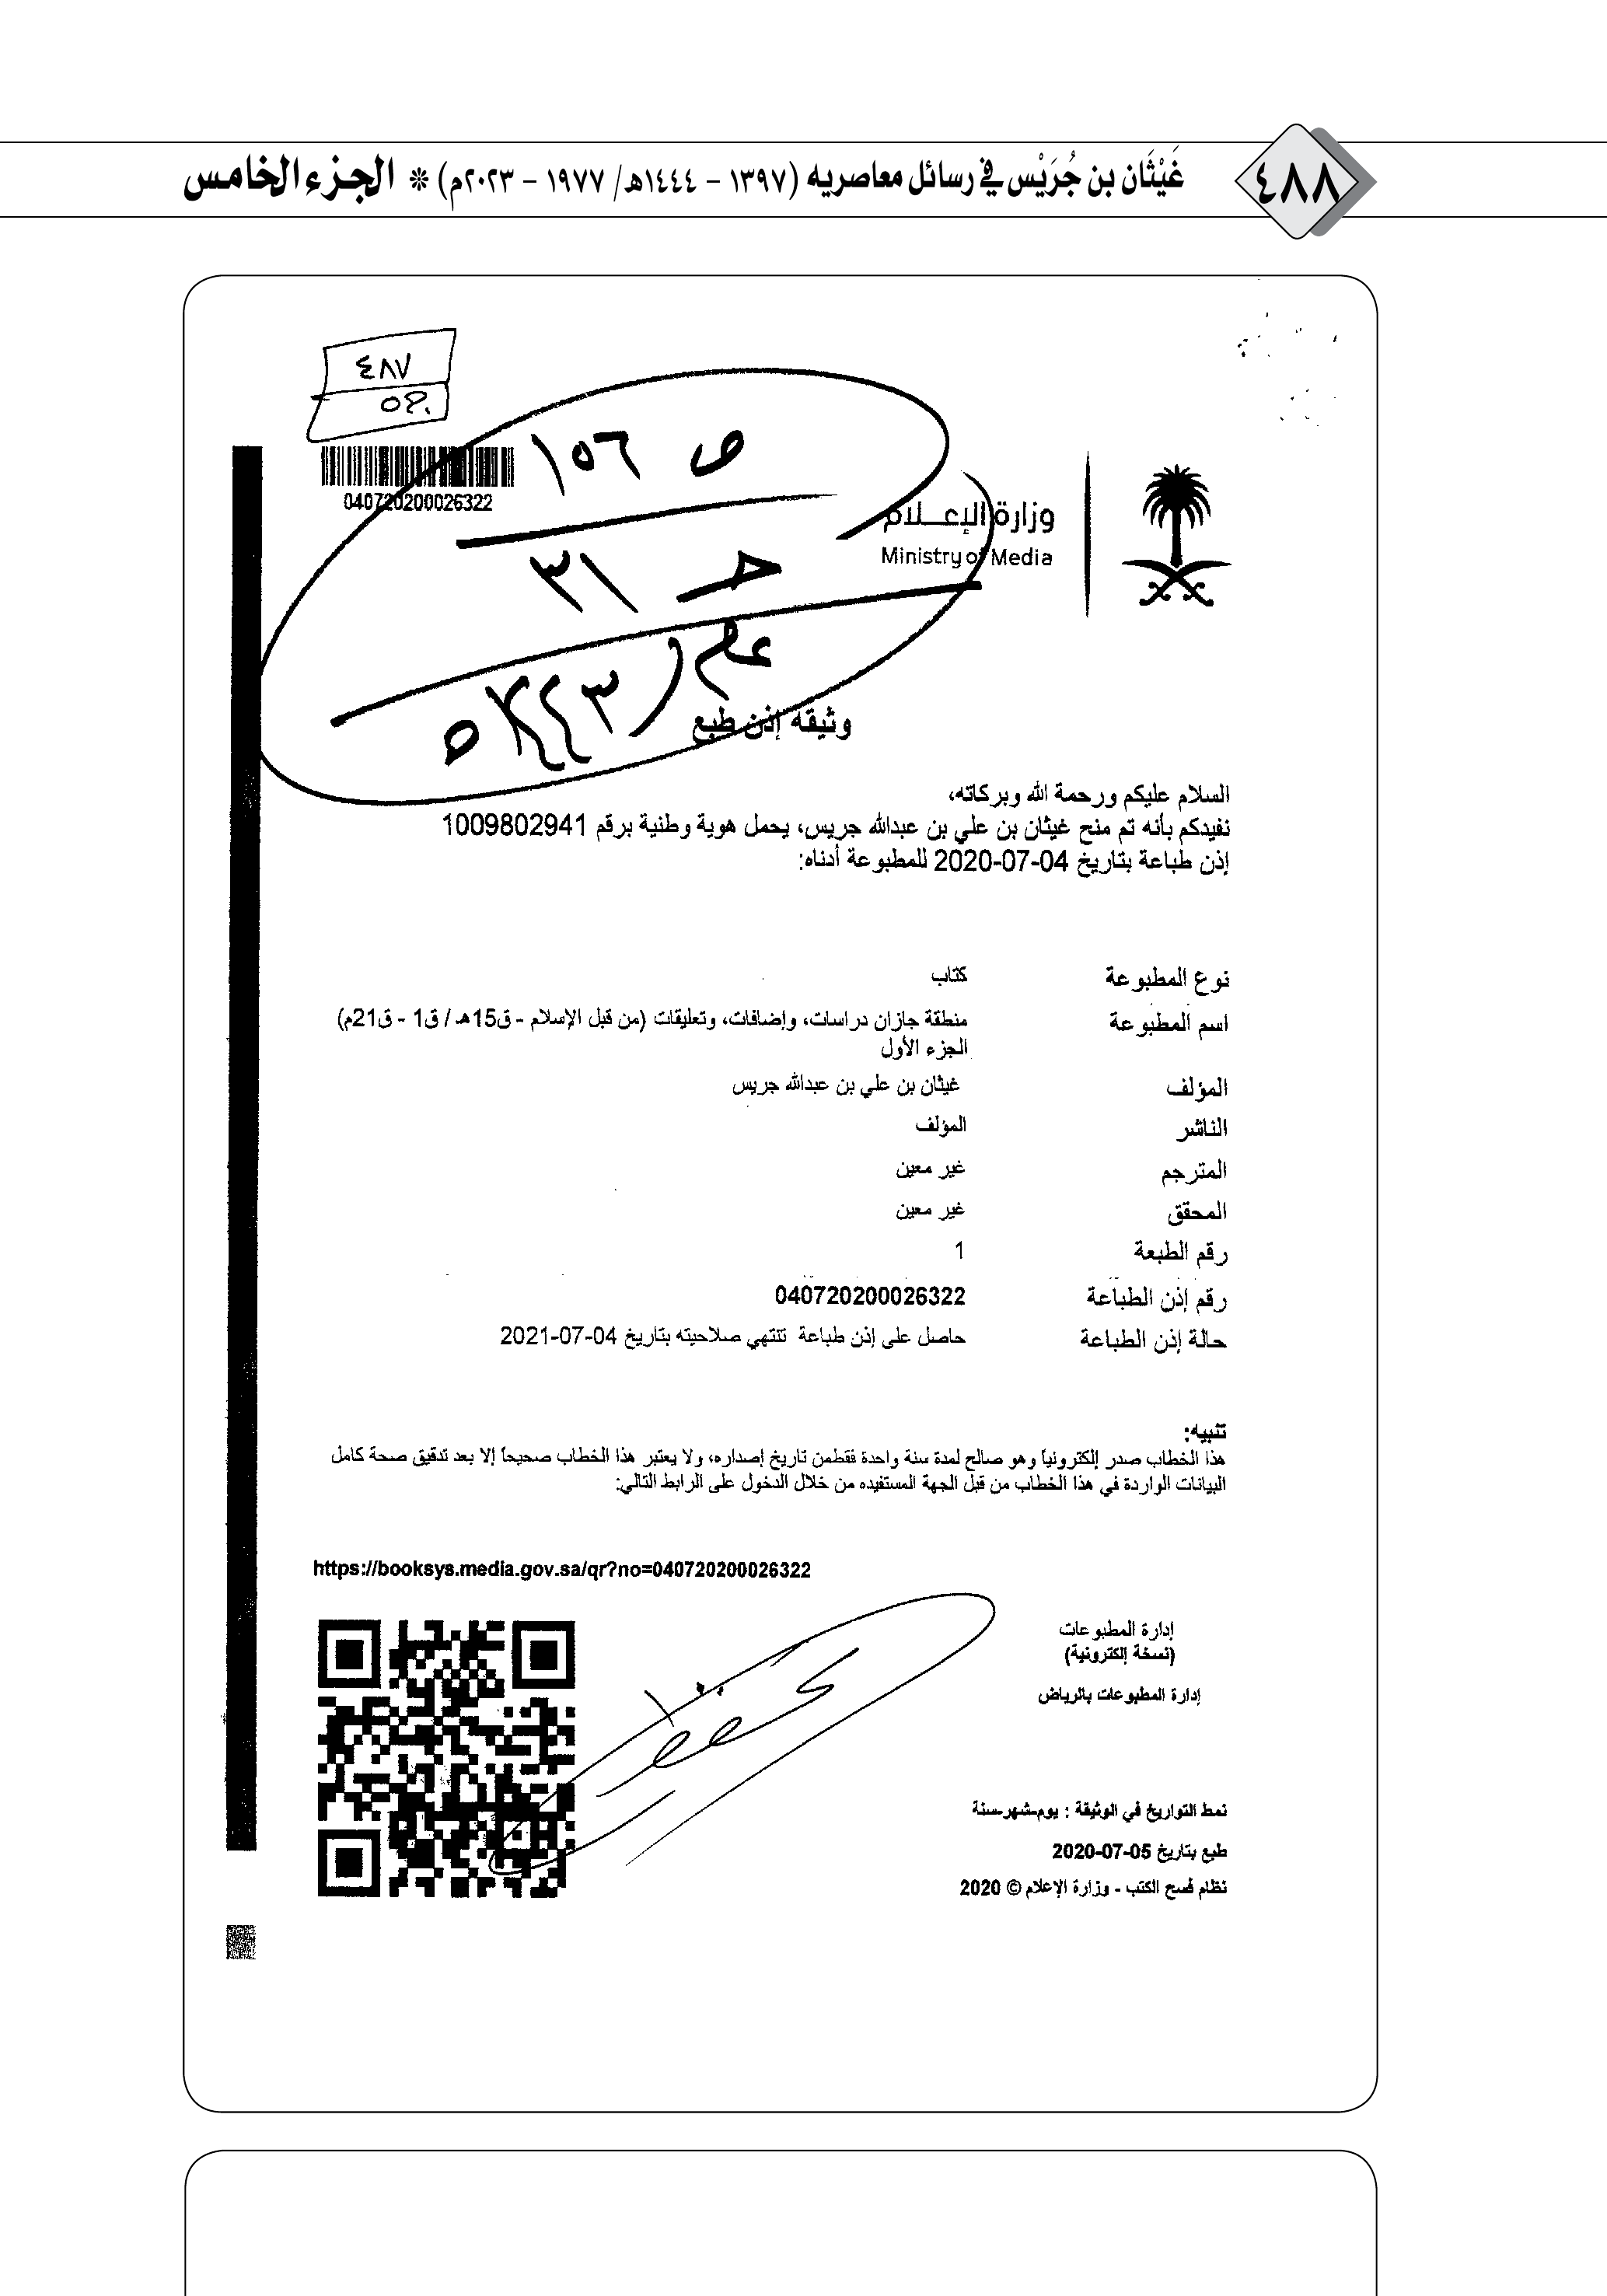 ٤٨٨
غَيْثَان بن جُرَيْس في رسائل معاصريه (١٣٩٧ - ١٤٤٤هـ/ ١٩٧٧ - ٢٠٢٣م) * الجزء الخامس
٤٨٧
ص ١٥٦
040720200026322
وزارة الإعـلام
Ministry of Media
جـ ٣١
وثيقه إذن طبع
السلام عليكم ورحمة الله وبركاته،
نفيدكم بأنه تم منح غيثان بن علي بن عبدالله جريس، يحمل هوية وطنية برقم 1009802941
إذن طباعة بتاريخ 04-07-2020 للمطبوعة أدناه:
نوع المطبوعة كتاب
اسم المطبوعة منطقة جازان دراسات، وإضافات، وتعليقات (من قبل الإسلام - ق15هـ / ق1 - ق21م)
الجزء الأول
المؤلف غيثان بن علي بن عبدالله جريس
الناشر المؤلف
المترجم غير معين
المحقق غير معين
رقم الطبعة 1
رقم إذن الطباعة 040720200026322
حالة إذن الطباعة حاصل على إذن طباعة تنتهي صلاحيته بتاريخ 04-07-2021
تنبيه:
هذا الخطاب صدر إلكترونياً وهو صالح لمدة سنة واحدة فقطمن تاريخ إصداره، ولا يعتبر هذا الخطاب صحيحاً إلا بعد تدقيق صحة كامل
البيانات الواردة في هذا الخطاب من قبل الجهة المستفيده من خلال الدخول على الرابط التالي:
https://booksys.media.gov.sa/qr?no=040720200026322
إدارة المطبوعات
(نسخة إلكترونية)
إدارة المطبوعات بالرياض
نمط التواريخ في الوثيقة : يوم-شهر-سنة
طبع بتاريخ 05-07-2020
نظام فسح الكتب - وزارة الإعلام © 2020